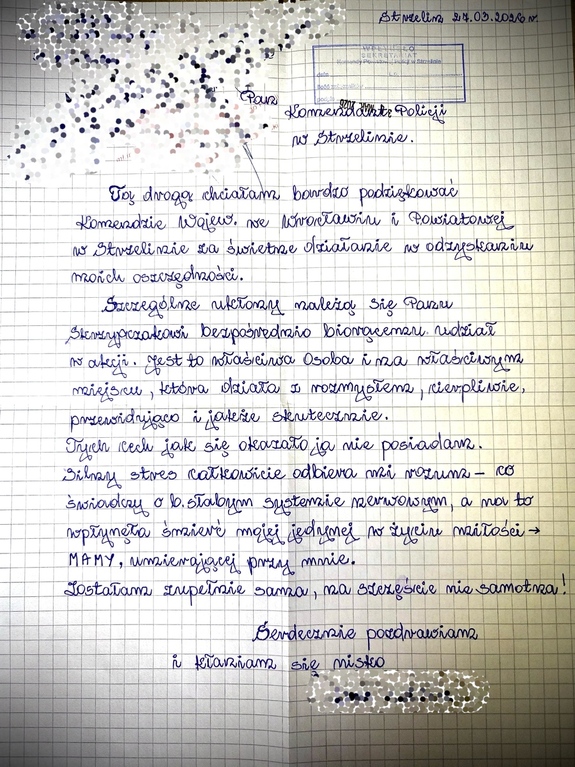 Strzelin 27.03.2026 r.
WPŁYNĘŁO
SEKRETARIAT
Komendy Powiatowej Policji w Strzelinie
Pan
Komendant Policji
w Strzelinie.
Tą drogą chciałam bardzo podziękować
Komendzie Wojew. we Wrocławiu i Powiatowej
w Strzelinie za świetne działanie w odzyskaniu
moich oszczędności.
Szczególne ukłony należą się Panu
Skrzypczakowi bezpośrednio biorącemu udział
w akcji. Jest to właściwa Osoba i na właściwym
miejscu, która działa z rozmysłem, cierpliwie,
przewidująco i jakże skutecznie.
Tych cech jak się okazało ja nie posiadam.
Silny stres całkowicie odbiera mi rozum – co
świadczy o b. słabym systemie nerwowym, a na to
wpłynęła śmierć mojej jedynej w życiu miłości →
MAMY, umierającej przy mnie.
Zostałam zupełnie sama, na szczęście nie samotna!
Serdecznie pozdrawiam
i kłaniam się nisko